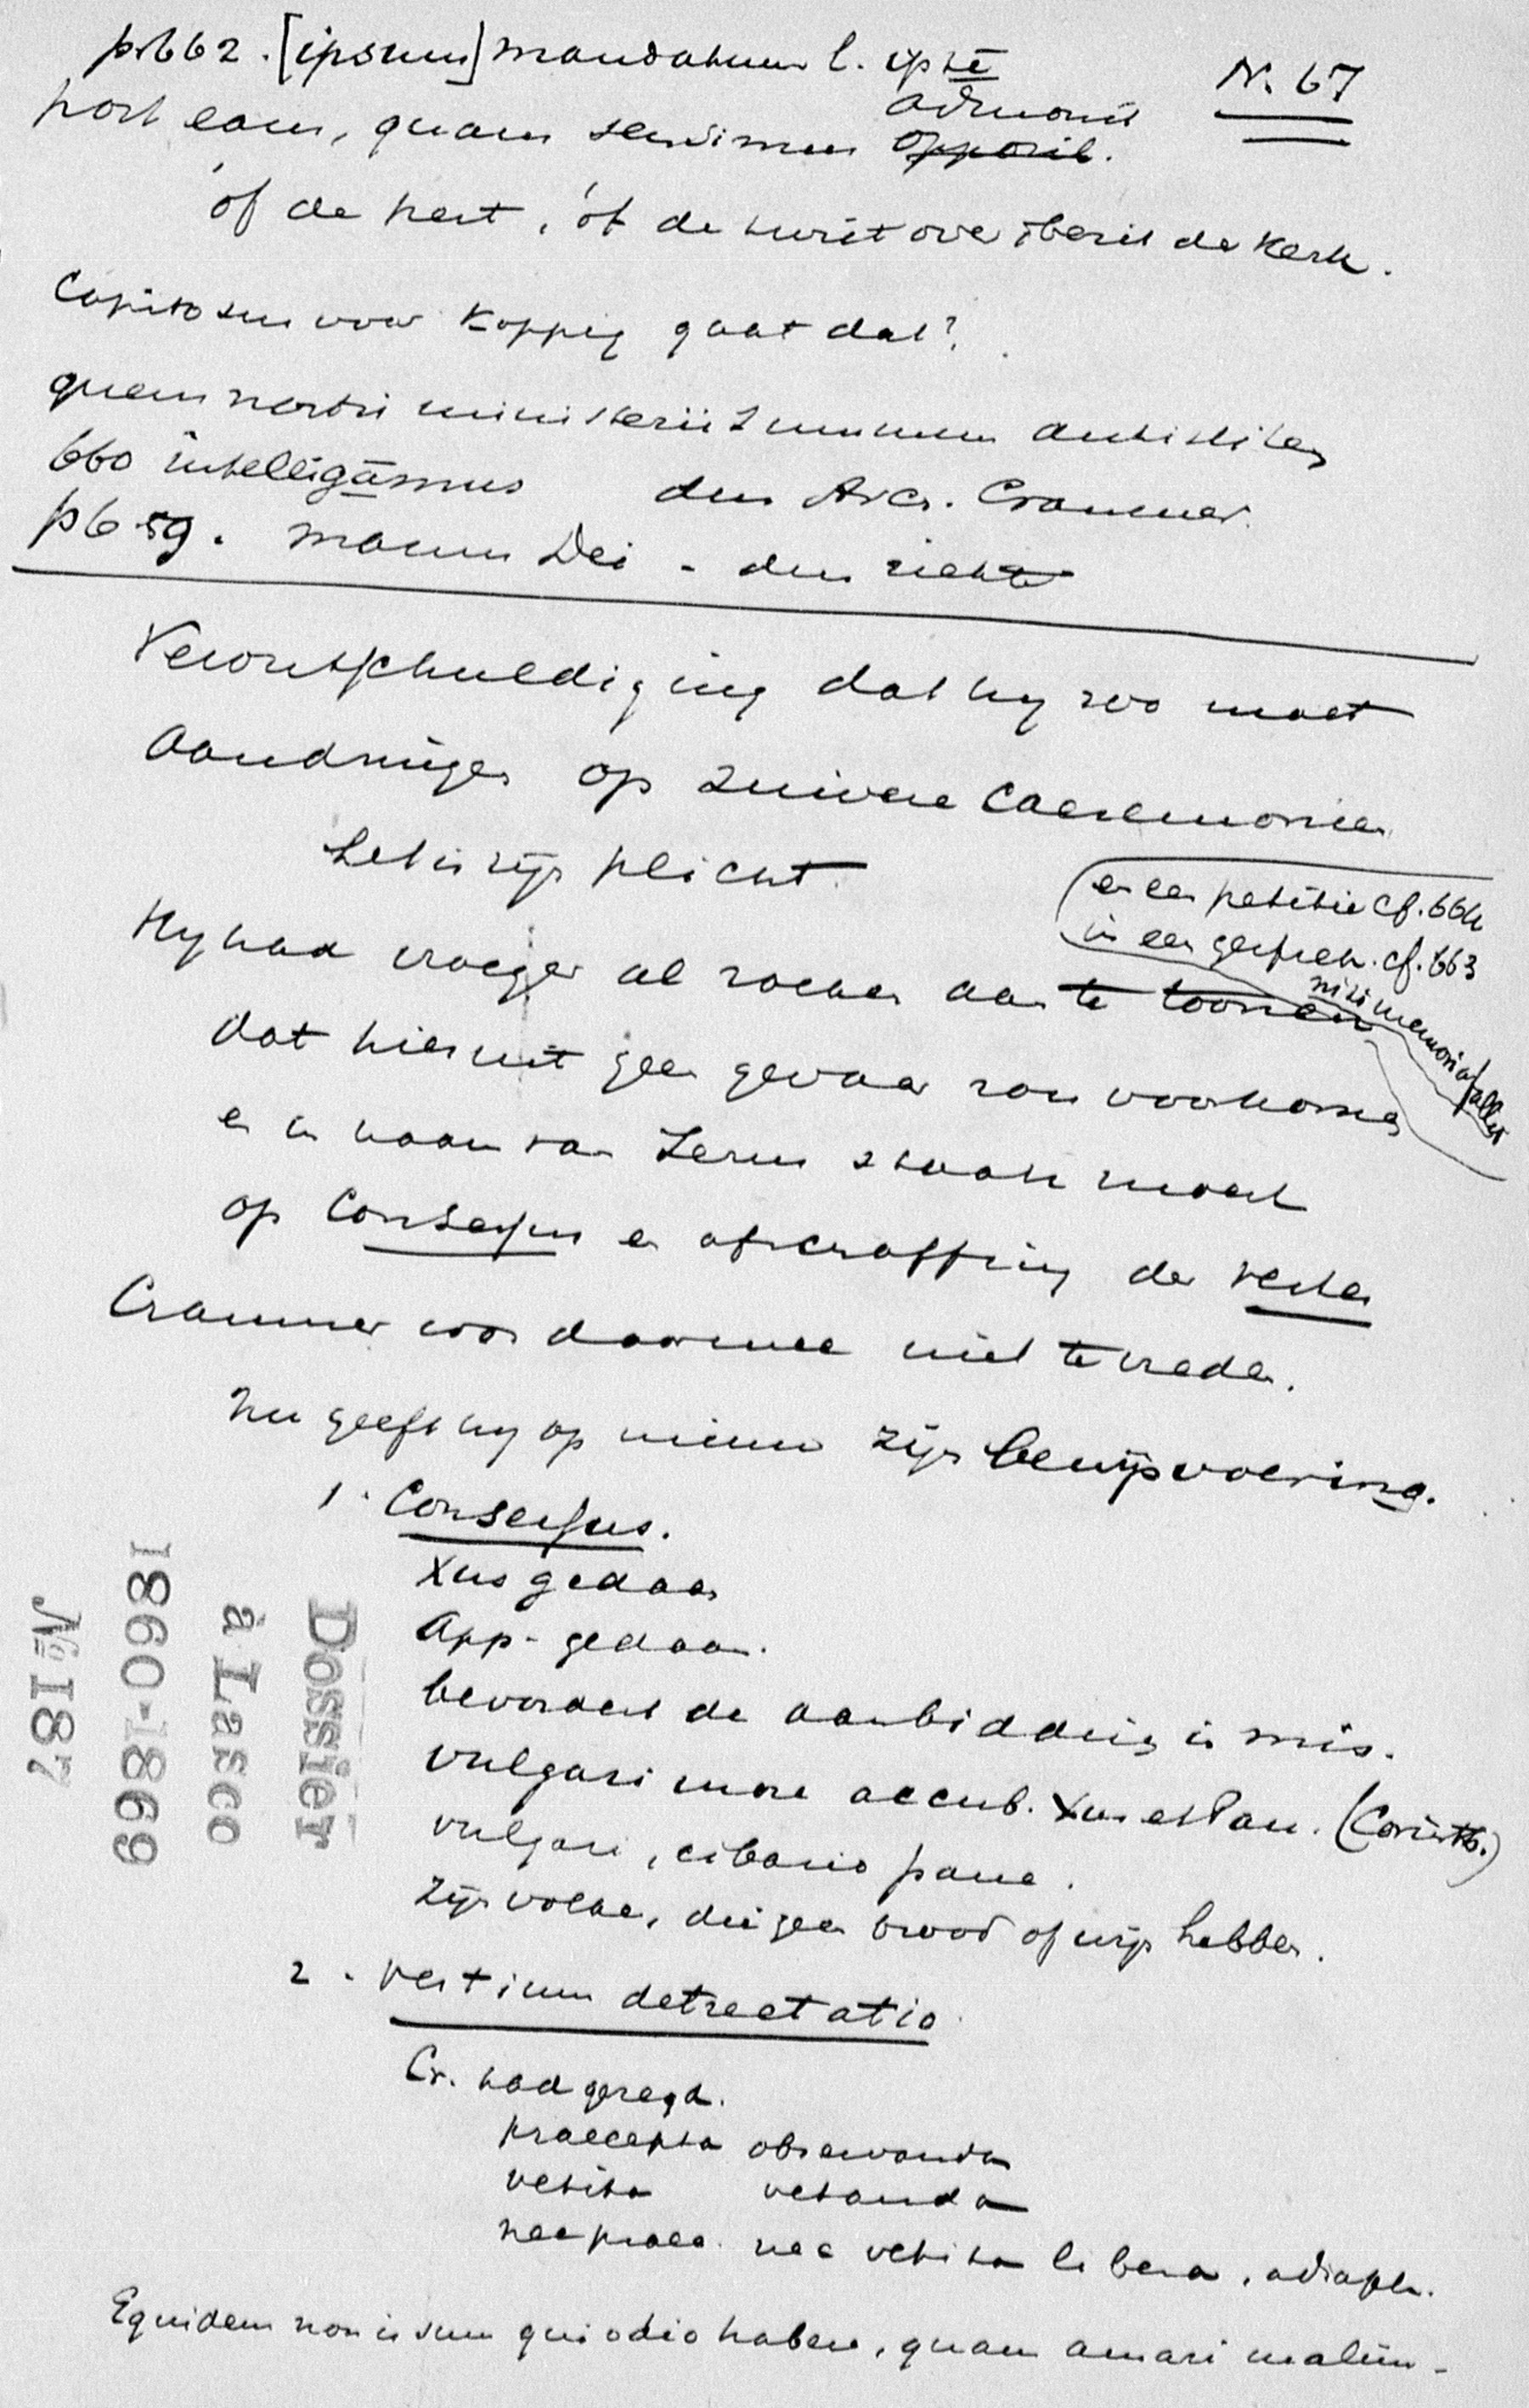 p. 662. [ipsum] mandatum l. ipse
N. 67
post eam, quam sensimus admonit
opposit.
óf de pest, óf de twist over
Capitosum voor koppig gaat dat?
quem nostri ministerii summum antistitem
660 intelligamus den Arcr. Cranmer.
p 659. manum Dei - den ziekte
Verontschuldiging dat hy zoo moet
aandringen op zuivere caeremonien
het is zijn plicht.
(en een petitie cf. 664
in een gesprek. cf. 663
nisi memoria fallit
Hy had vroeger al zoeken aan te toonen
dat hieruit geen gevaar zou voorkomen
en in naam van Jezus
op Consessus en afschaffing der vestes
Cranmer was daarmee niet tevreden.
Nu geeft hy op nieuw zijn bewijsvoering.
1. Consessus.
Xus gedaan
App. gedaan.
bevordert de aanbidding in mis.
vulgari more accub. Xus et Pau. (Corinth.)
vulgari, cibario pane.
Zijn volken, die geen brood of wijn hebben.
2. Vestium detrectatio.
Cr. had gezegd.
praecepta observanda
vetita vetanda
nec praec. nec vetita libera, adiaph.
Equidem non is sum qui odio habere, quam amari malim -
Dossier
à Lasco
1860-1869
No 187